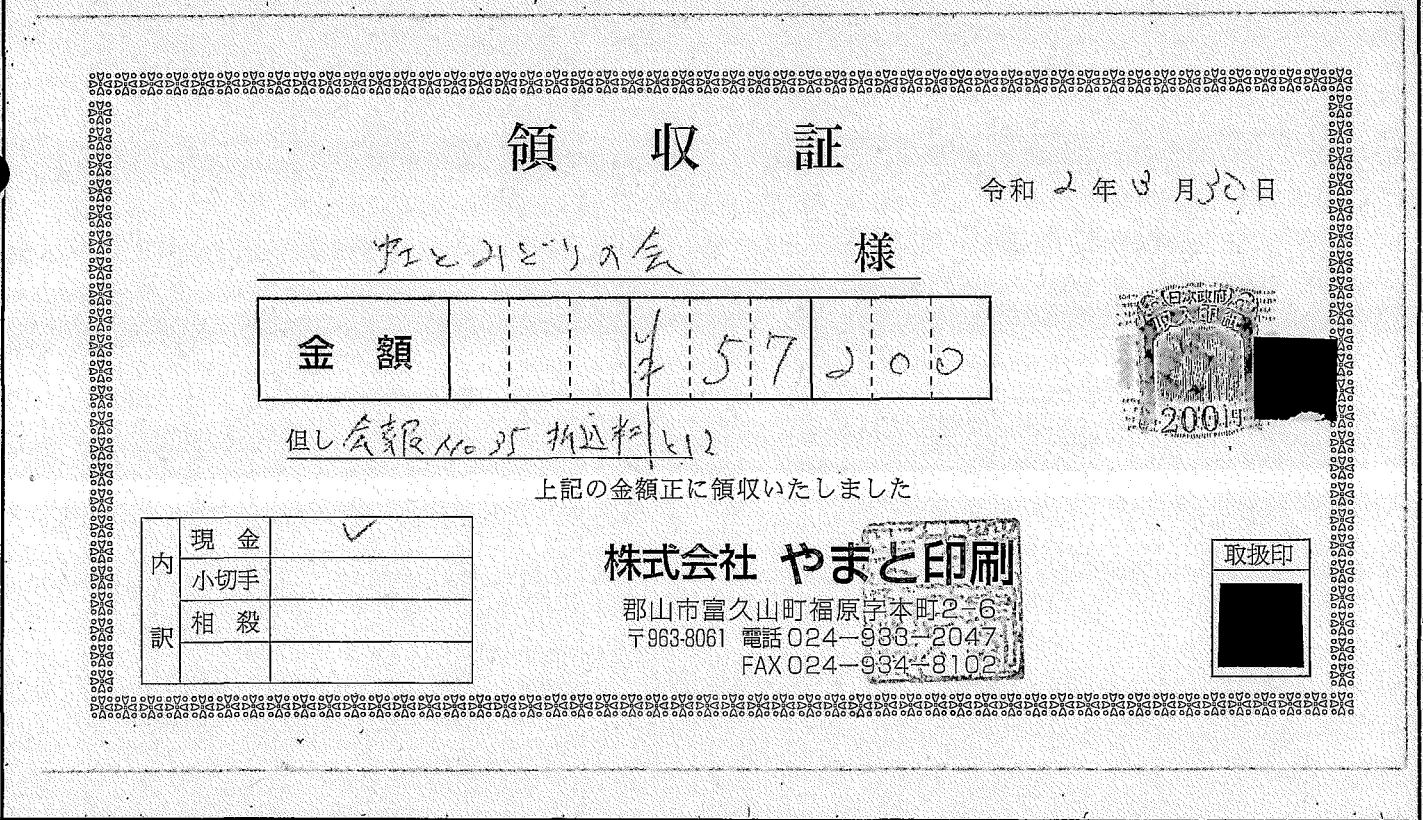 領収証
令和 2 年 3 月 30 日
虹とみどりの会 様
金額 ¥57200
但し 会報 No.35 折込料として
上記の金額正に領収いたしました
日本政府
収入印紙
200円
内訳
現金 ✓
小切手
相殺
株式会社 やまと印刷
郡山市富久山町福原字本町2-6
〒963-8061 電話024-933-2047
FAX024-934-8102
取扱印